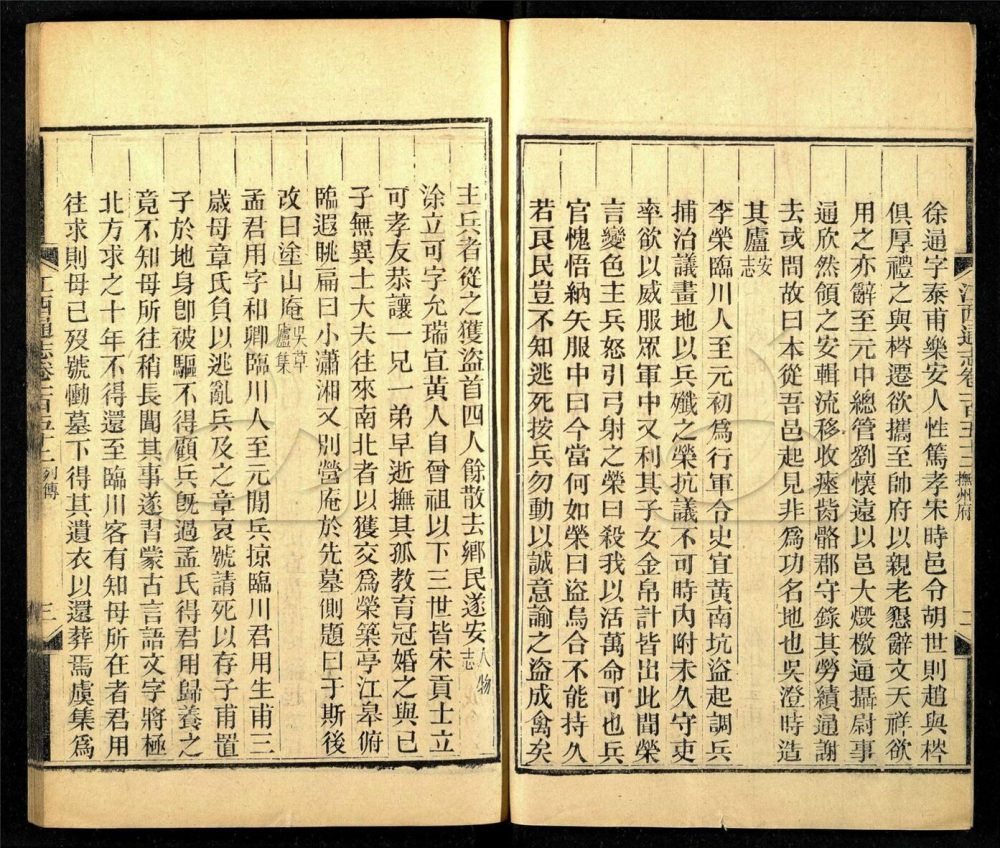 徐通字泰甫樂安人性篤孝宋時邑令胡世則趙與梣
俱厚禮之與梣遷欲攜至帥府以親老懇辭文天祥欲
用之亦辭至元中總管劉懷遠以邑大燬檄通攝尉事
通欣然領之安輯流移收瘞胔骼郡守錄其勞績通謝
去或問故曰本從吾邑起見非為功名地也吳澄時造
其廬安志
李榮臨川人至元初為行軍令史宜黃南坑盜起調兵
捕治議畫地以兵殲之榮抗議不可時內附未久守吏
率欲以威服眾軍中又利其子女金帛計皆出此聞榮
言變色主兵怒引弓射之榮曰殺我以活萬命可也兵
官愧悟納矢服中曰今當何如榮曰盜烏合不能持久
若良民豈不知逃死按兵勿動以誠意諭之盜成禽矣
江西通志卷一百五十二 撫州府 二
主兵者從之獲盜首四人餘散去鄉民遂安人物志
涂立可字允瑞宜黃人自曾祖以下三世皆宋貢士立
可孝友恭讓一兄一弟早逝撫其孤教育冠婚之與已
子無異士大夫往來南北者以獲交為榮築亭江皋俯
臨遐眺扁曰小瀟湘又別營庵於先墓側題曰于斯後
改曰塗山庵吳草廬集
孟君用字和卿臨川人至元閒兵掠臨川君用生甫三
歲母章氏負以逃亂兵及之章哀號請死以存子甫置
子於地身卽被驅不得顧兵旣過孟氏得君用歸養之
竟不知母所往稍長聞其事遂習蒙古言語文字將極
北方求之十年不得還至臨川客有知母所在者君用
往求則母已歿號慟墓下得其遺衣以還葬焉虞集為
江西通志卷一百五十二 列傳 三